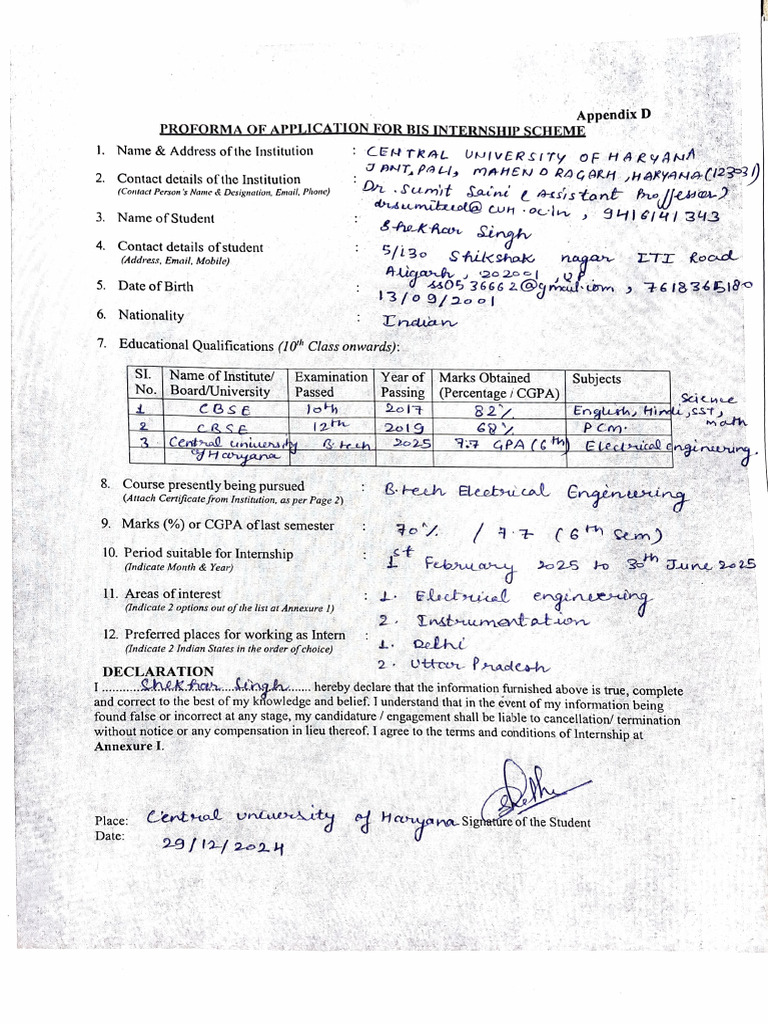 Appendix D
PROFORMA OF APPLICATION FOR BIS INTERNSHIP SCHEME
1. Name & Address of the Institution : CENTRAL UNIVERSITY OF HARYANA
JANT, PALI, MAHENDRAGARH, HARYANA (123031)
2. Contact details of the Institution : Dr. Sumit Saini (Assistant Proffessor)
(Contact Person's Name & Designation, Email, Phone) drsumiteed@cuh.ac.in, 9416141343
3. Name of Student : Shekhar Singh
4. Contact details of student : 5/130 Shikshak nagar ITI Road
(Address, Email, Mobile) Aligarh, 202001, UP
ss0536662@gmail.com, 7618365180
5. Date of Birth : 13/09/2001
6. Nationality : Indian
7. Educational Qualifications (10th Class onwards):
SI. No. Name of Institute/ Board/University Examination Passed Year of Passing Marks Obtained (Percentage / CGPA) Subjects
1 CBSE 10th 2017 82% English, Hindi, SST, Science math
2 CBSE 12th 2019 68% PCM.
3 Central university of Haryana B.tech 2025 7.7 GPA (6th) Electrical engineering.
8. Course presently being pursued : B.tech Electrical Engineering
(Attach Certificate from Institution, as per Page 2)
9. Marks (%) or CGPA of last semester : 70% / 7.7 (6th sem)
10. Period suitable for Internship : 1st February 2025 to 30th June 2025
(Indicate Month & Year)
11. Areas of interest : 1. Electrical engineering
(Indicate 2 options out of the list at Annexure 1) 2. Instrumentation
12. Preferred places for working as Intern : 1. Delhi
(Indicate 2 Indian States in the order of choice) 2. Uttar Pradesh
DECLARATION
I ...........Shekhar Singh....... hereby declare that the information furnished above is true, complete
and correct to the best of my knowledge and belief. I understand that in the event of my information being
found false or incorrect at any stage, my candidature / engagement shall be liable to cancellation/ termination
without notice or any compensation in lieu thereof. I agree to the terms and conditions of Internship at
Annexure I.
Place: Central university of Haryana Signature of the Student
Date: 29/12/2024